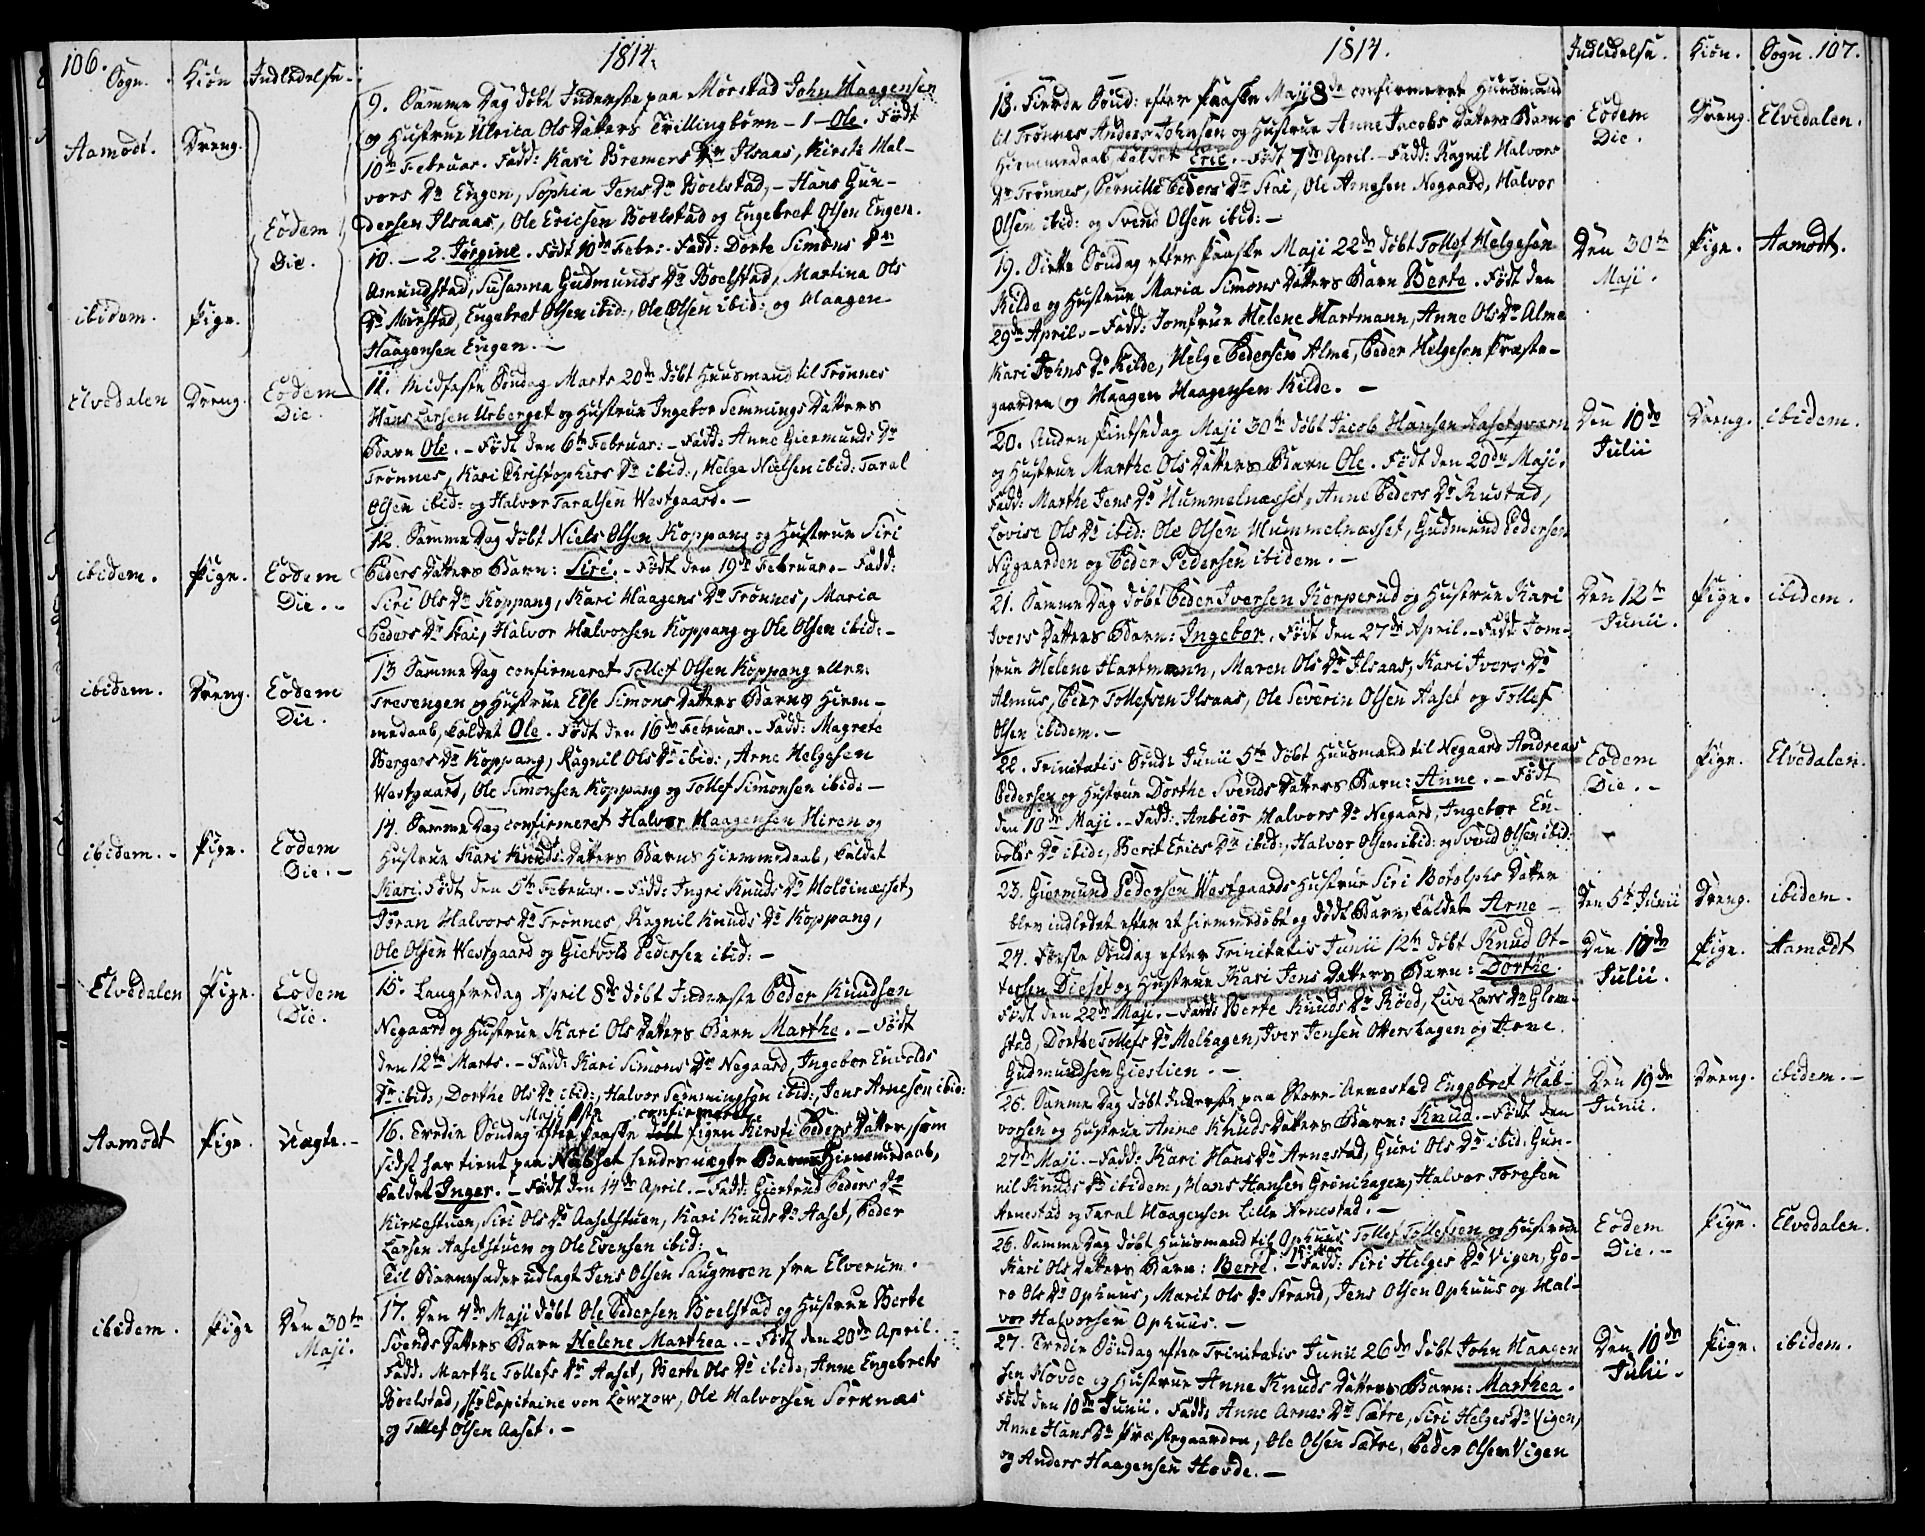 106.
1814.
Sogn. Kiön Indledelse.
Aamodt. Dreng. Eodem Die.
9. Samme Dag döbt Inderste paa Morstad John Haagensen
og Hustrue Ulrica Ols Datters Tvillingbörn - 1 - Ole. Födt
10de Februar. Fadd: Kari Bremers Dr Ilsaas, Kirste Hal-
vors Dr Engen, Sophia Jens Dr Boelstad, - Hans Gun-
dersen Ilsaas, Ole Ericsen Boelstad og Engebret Olsen Engen.
ibidem. Pige.
10. - 2. Jörgine. Födt 10de Febr: - Fadd: Dorte Simons Dr
Amundstad, Susanna Gudmunds Dr Boelstad, Martina Ols
Dr Morstad, Engebret Olsen ibid:, Ole Olsen ibid: og Haagen
Haagensen Engen. -
Elvedalen Dreng. Eodem Die.
11. Midfaste Söndag Marts 20de döbt Huusmand til Trönnes
Hans Larsen Urberget og Hustrue Ingebor Semmings Datters
Barn Ole. - Födt den 6te Februar: - Fadd: Anne Giermunds Dr
Trönnes, Kari Christophers Dr ibid:, Helge Nielsen ibid: Taral
Olsen ibid: og Halvor Taralsen Westgaard. -
ibidem. Pige. Eodem Die. -
12. Samme Dag döbt Niels Olsen Koppang og Hustrue Siri
Peders Datters Barn: Siri. - Födt den 19de Februar. - Fadd:
Siri Ols Dr Koppang, Kari Haagens Dr Trönnes, Maria
Peders Dr Stai, Halvor Halvorsen Koppang og Ole Olsen ibid: -
ibidem. Dreng. Eodem Die.
13 Samme Dag confirmeret Tollef Olsen Koppang eller
Tresengen og Hustrue Else Simons Datters Barns Hiem-
medaab, kaldet Ole. Födt den 16de Februar. - Fadd: Magrete
Bergers Dr Koppang, Ragnil Ols Dr ibid:, Arne Helgesen
Westgaard, Ole Simonsen Koppang og Tollef Simonsen ibid: -
ibidem. - Pige. Eodem Die. -
14. Samme Dag confirmeret Halvor Haagensen Hiren og
Hustrue Kari Knuds Datters Barns Hiemmedaab, kaldet
Kari. Födt den 5te Februar. - Fadd: Ingri Knuds Dr Holöinæsset,
Göran Halvors Dr Trönnes, Ragnil Knuds Dr Koppang,
Ole Olsen Westgaard og Gietvold Pedersen ibid: -
Elvedalen Pige. Eodem Die.
15. Langfredag April 8de döbt Inderste Peder Knudsen
Negaard og Hustrue Kari Ols Datters Barn Marthe. - Födt
den 12te Marts. - Fadd: Kari Simons Dr Negaard, Ingebor Envolds
Dr ibid:, Dorthe Ols Dr ibid:, Halvor Semmingsen ibid:, Jens Arnesen ibid:
Aamodt Pige. Uægte. -
16. Tredie Söndag efter Paaske Maji 1ste confirmeret Pigen Kirsti Peders Datter, som
sidst har tient paa Næbset hendes uægte Barns Hiemmedaab,
kaldet Inger. - Födt den 14de April. - Fadd: Giertrud Peders Dr
Kirkestuen, Siri Ols Dr Aasetstuen, Kari Knuds Dr Aaset, Peder
Larsen Aasetstuen og Ole Evensen ibid:
Til Barnefader udlagt Jens Olsen Saugmoen fra Elverum.
ibidem. Pige Den 30te Maji.
17. Den 4de Maji döbt Ole Pedersen Boelstad og Hustrue Berte
Svends Datters Barn Helene Marthea. - Födt den 20de April.
Fadd: Marthe Tollefs Dr Aaset, Berte Ols Dr ibid:, Anne Engebrets
Boelstad, Hr Capitaine von Lowzow, Ole Halvorsen Sorknæs
og Tollef Olsen Aaset. -
1814.
Indledelse. Kiön. Sogn. 107.
18. Fierde Sönd: efter Paaske Maji 8de confirmeret Huusmand
til Trönnes Anders Johnsen og Hustrue Anne Jacobs Datters Barns
Hiemmedaab, kaldet Eric. - Födt 7de April. - Fadd: Ragnil Halvors
Dr Trönnes, Pernille Peders Dr Stai, Ole Arnesen Negaard, Halvor
Olsen ibid: og Svend Olsen ibid: -
Eodem Die. Dreng. Elvedalen.
19. Siette Söndag efter Paaske Maji 22de döbt Tollef Helgesen
Kilde og Hustrue Maria Simons Datters Barn Berte. Födt den
29de April. - Fadd: Jomfrue Helene Hartmann, Anne Ols Dr Alme
Kari Johns Dr Kilde, Helge Pedersen Alme, Peder Helgesen Præste-
gaarden og Haagen Haagensen Kilde. -
Den 30te Maji. Pige. Aamodt.
20. Anden Pintsedag Maji 30te döbt Jacob Hansen Aasetqværn
og Hustrue Marthe Ols Datters Barn Ole. Födt den 20de Maji.
Fadd: Marthe Jens Dr Hummelnæsset, Anne Peders Dr Rustad,
Lovise Ols Dr ibid: Ole Olsen Hummelnæsset, Gudmund Pedersen
Nygaarden og Peder Pedersen ibidem. -
Den 10de Julii Dreng. ibidem.
21. Samme Dag döbt Peder Iversen Korperud og Hustrue Kari
Ivers Datters Barn: Ingebor. Födt den 27de April. - Fadd: Jom-
frue Helene Hartmann, Maren Ols Dr Ilsaas, Kari Ivers Dr
Almus, Peder Tollefsen Ilsaas, Ole Severin Olsen Aaset og Tollef
Olsen ibidem. -
Den 12te Junii. Pige. ibidem.
22. Trinitatis Sönd: Junii 5te döbt Huusmand til Negaard Andreas
Pedersen og Hustrue Dorthe Svends Datters Barn: Anne. - Födt
den 10de Maji. - Fadd: Anbiör Halvors Dr Negaard, Ingebor En-
volds Dr ibid:, Berit Erics Dr ibid:, Halvor Olsen ibid: og Svend Olsen ibid:
Eodem Die. - Pige. Elvedalen.
23. Giermund Pedersen Westgaards Hustrue Siri Botolphs Datter
blev indledet efter et hiemmedöbt og dödt Barn, kaldet Arne -
Den 5te Junii Dreng. ibidem.
24. Förste Söndag efter Trinitatis Junii 12te döbt Knud Ot-
tersen Dieset og Hustrue Kari Jens Datters Barn: Dorthe.
Födt den 22de Maji. - Fadd: Berte Knuds Dr Röed, Live Lars Dr Glom-
stad, Dorthe Tollefs Dr Melhagen, Iver Jensen Ottershagen og Arne
Gudmundsen Gieslien. -
Den 10de Julii. Pige. Aamodt
25. Samme Dag döbt Inderste paa Store Arnestad Engebret Hal-
vorsen og Hustrue Anne Knuds Datters Barn: Knud. - Födt den
27de Maji. - Fadd: Kari Hans Dr Arnestad, Guri Ols Dr ibid: Gun-
nil Knuds Dr ibidem, Hans Hansen Grönhagen, Halvor Toresen
Arnestad og Taral Haagensen Lille Arnestad. -
Den 19de Junii. Dreng. ibidem. -
26. Samme Dag döbt Huusmand til Ophuus Tollef Tollefsen og Hustrue
Kari Ols Datters Barn: Berte. - Fadd: Siri Helges Dr Vigen, Go-
ro Ols Dr Ophuus, Marit Ols Dr Strand, Jens Olsen Ophuus og Hal-
vor Halvorsen Ophuus. -
Eodem Die. - Pige. Elvedalen.
27. Tredie Söndag efter Trinitatis Junii 26de döbt John Haagen
sen Hovde og Hustrue Anne Knuds Datters Barn: Marthea.
Födt den 10de Junii. Fadd: Anne Arnes Dr Sætre, Siri Helges Dr Vigen,
Anne Hans Dr Præstegaarden, Ole Olsen Sætre, Peder Olsen Vigen
og Anders Haagensen Hovde. -
Den 10de Julii. Pige. ibidem.